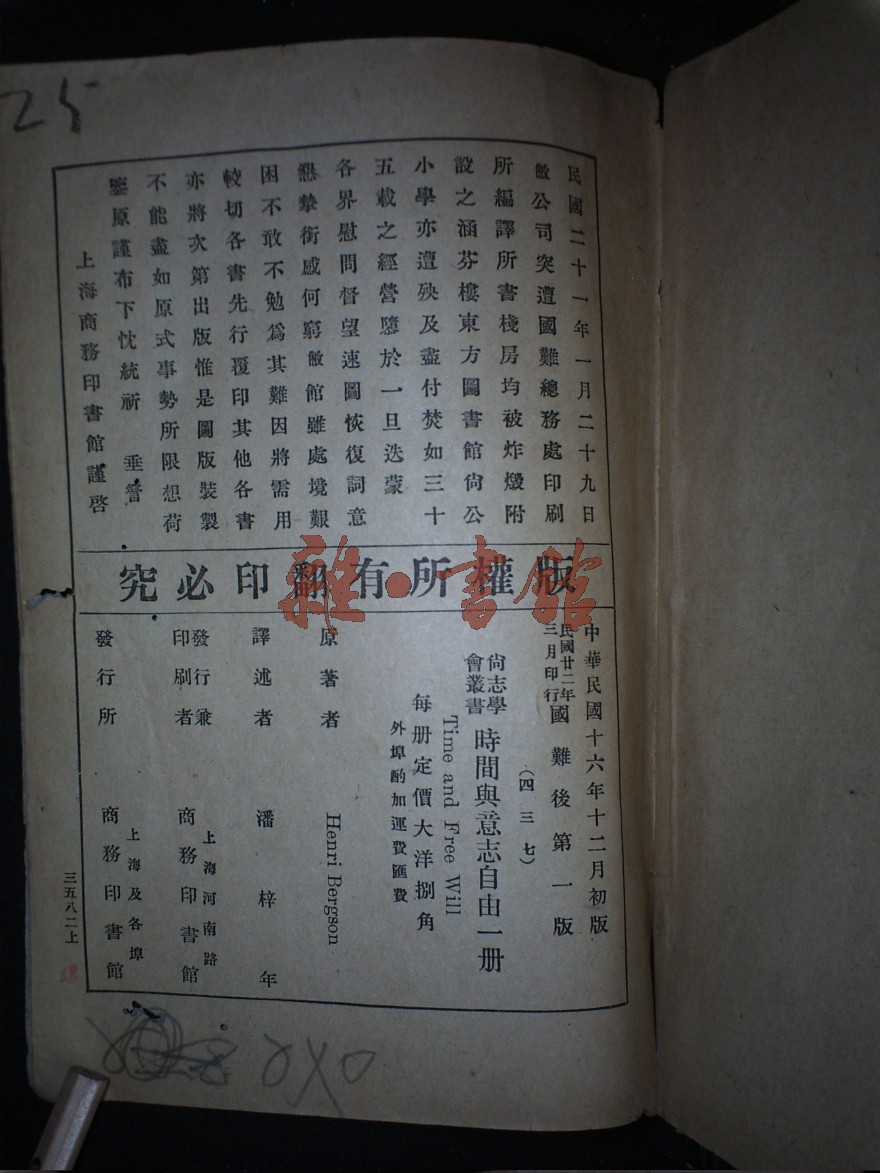 25
民國二十一年一月二十九日
敝公司突遭國難總務處印刷
所編譯所書棧房均被炸燬附
設之涵芬樓東方圖書館尙公
小學亦遭殃及盡付焚如三十
五載之經營隳於一旦迭蒙
各界慰問督望速圖恢復詞意
懇摯銜感何窮敝館雖處境艱
困不敢不勉爲其難因將需用
較切各書先行覆印其他各書
亦將次第出版惟是圖版裝製
不能盡如原式事勢所限想荷
鑒原謹布下忱統祈 垂詧
上海商務印書館謹啓
版權所有翻印必究
中華民國十六年十二月初版
民國廿二年三月印行 國難後第一版
(四三七)
尙志學會叢書 時間與意志自由一册
Time and Free Will
每册定價大洋捌角
外埠酌加運費匯費
原著者 Henri Bergson
譯述者 潘梓年
發行兼印刷者 上海河南路 商務印書館
發行所 上海及各埠 商務印書館
三五八二上
雜·書館